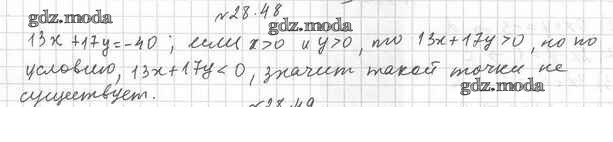 №28.48
gdz.moda
gdz.moda
13x+17y=-40; если x>0 и y>0, то 13x+17y>0, но по
условию, 13x+17y<0, значит такой точки не
gdz.moda
существует.
№28.49